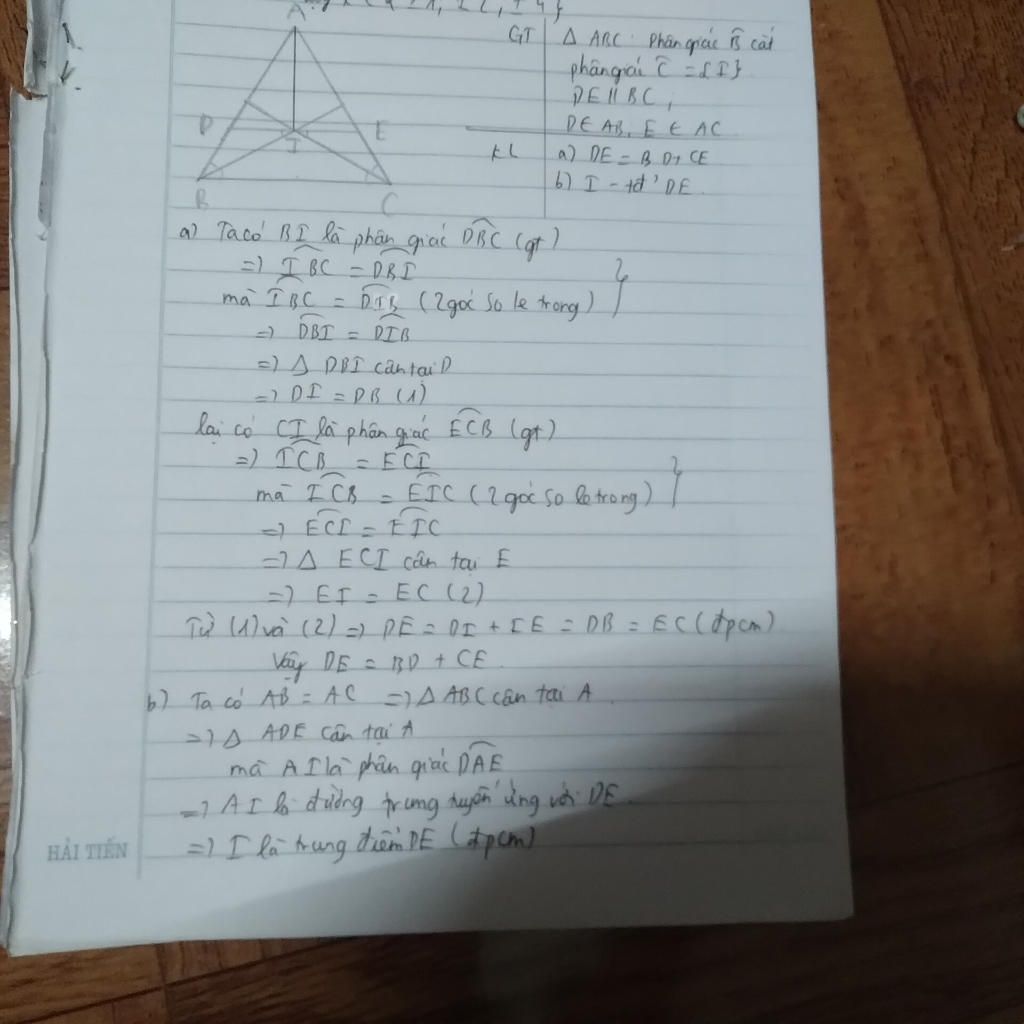 A
D
E
I
B
C
GT
Δ ABC. Phân giác B̂ cắt
phân giác Ĉ = {I}
DE // BC,
D ∈ AB, E ∈ AC
KL
a) DE = BD + CE
b) I - tđ' DE
a) Ta có BI là phân giác DBC (gt)
=> IBC = DBI
mà IBC = DIB (2 góc so le trong)
=> DBI = DIB
=> Δ DBI cân tại D
=> DI = DB (1)
lại có CI là phân giác ECB (gt)
=> ICB = ECI
mà ICB = EIC (2 góc so le trong)
=> ECI = EIC
=> Δ ECI cân tại E
=> EI = EC (2)
Từ (1) và (2) => DE = DI + IE = DB = EC (đpcm)
Vậy DE = BD + CE.
b) Ta có AB = AC => Δ ABC cân tại A.
=> Δ ADE cân tại A
mà AI là phân giác DAE
=> AI là đường trung tuyến ứng với DE.
=> I là trung điểm DE (đpcm)
HẢI TIẾN